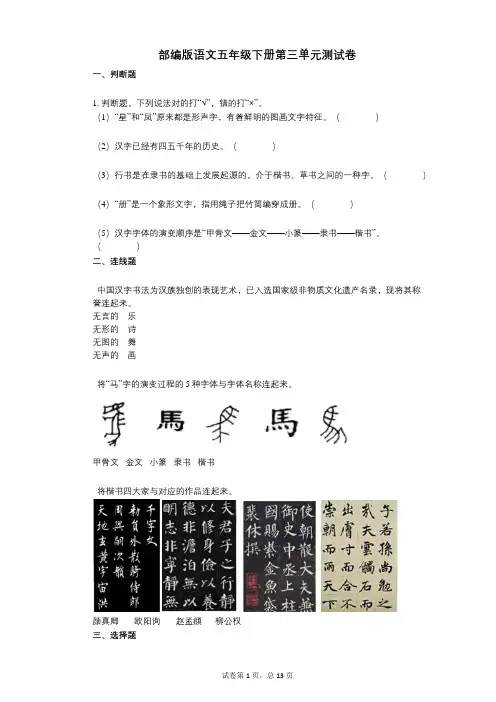 部编版语文五年级下册第三单元测试卷
一、判断题
1. 判断题，下列说法对的打“√”，错的打“×”。
(1)“星”和“凤”原来都是形声字，有着鲜明的图画文字特征。(　　)
(2）汉字已经有四五千年的历史。(　　)
(3）行书是在隶书的基础上发展起源的，介于楷书、草书之间的一种字。(　　)
(4)“册”是一个象形文字，指用绳子把竹简编穿成册。(　　)
(5）汉字字体的演变顺序是“甲骨文——金文——小篆——隶书——楷书”。
(　　)
二、连线题
中国汉字书法为汉族独创的表现艺术，已入选国家级非物质文化遗产名录，现将其称
誉连起来。
无言的 乐
无形的 诗
无图的 舞
无声的 画
将“马”字的演变过程的 5 种字体与字体名称连起来。
馬 馬
甲骨文 金文 小篆 隶书 楷书
将楷书四大家与对应的作品连起来。
千字文
勑員外散騎侍郎
周興嗣次韻
天地玄黃宇宙洪
夫君子之行靜
以修身儉以養
德非澹泊無以
明志非寧靜無
使朝散大夫兼
御史中丞上柱
國賜紫金魚袋
裴休撰
子若孫尚勉之
哉夫雲觸石而
出膚寸而合不
崇朝而雨天下
颜真卿 欧阳询 赵孟頫 柳公权
三、选择题
试卷第 1 页，总 13 页